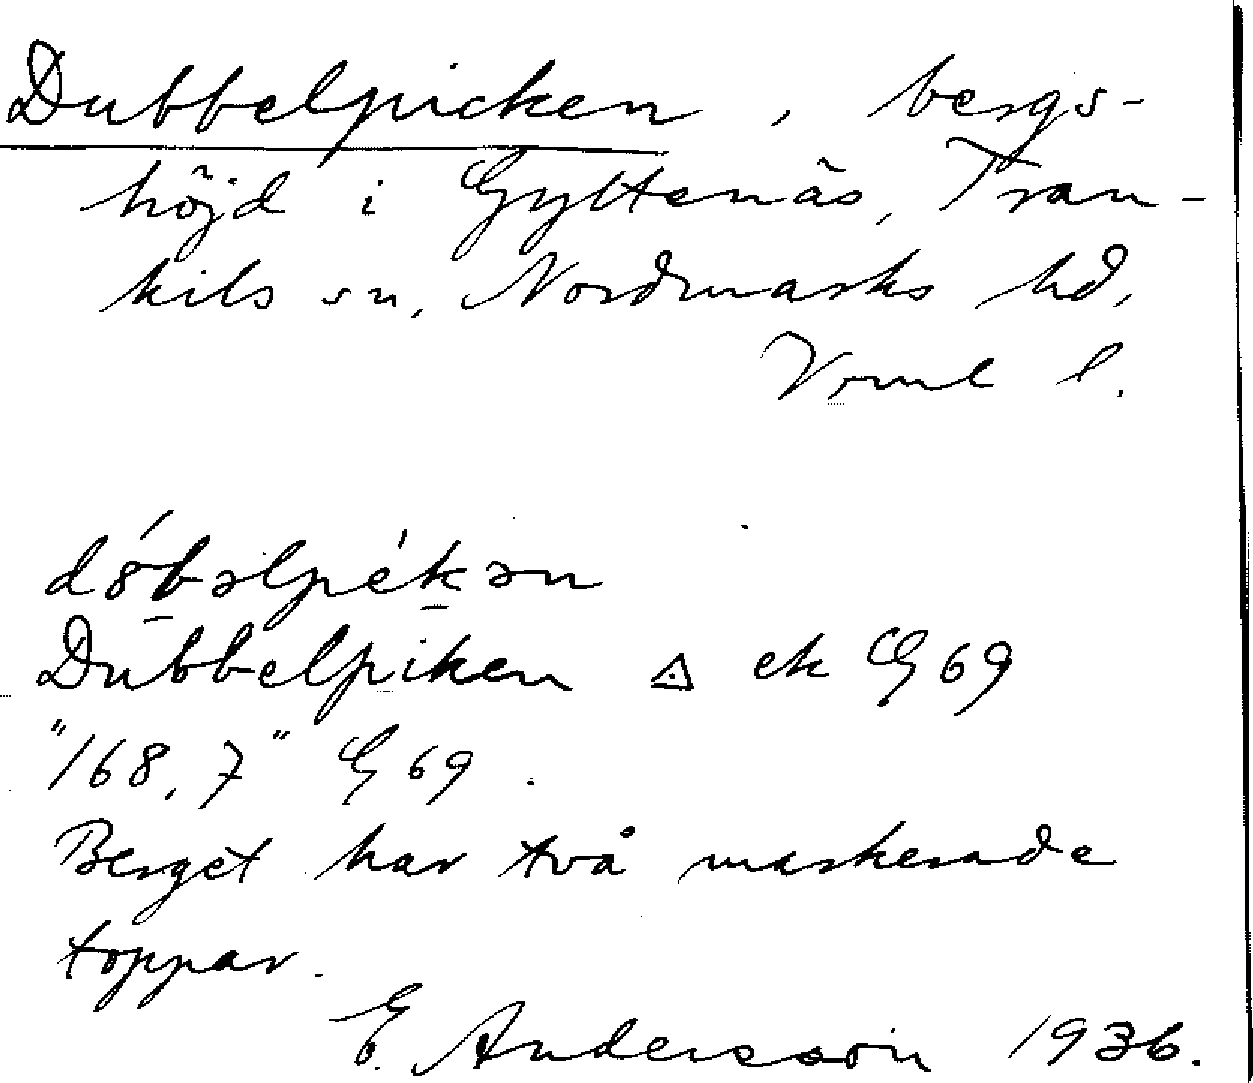 Dubbelpicken, bergs-
höjd i Gyltenäs, Tran-
kils sn, Nordmarks hd,
Vrml l.
Dubbelpiken △ ek G 69
"168,7" G 69.
Berget har två markerade
toppar.
E. Andersson 1936.